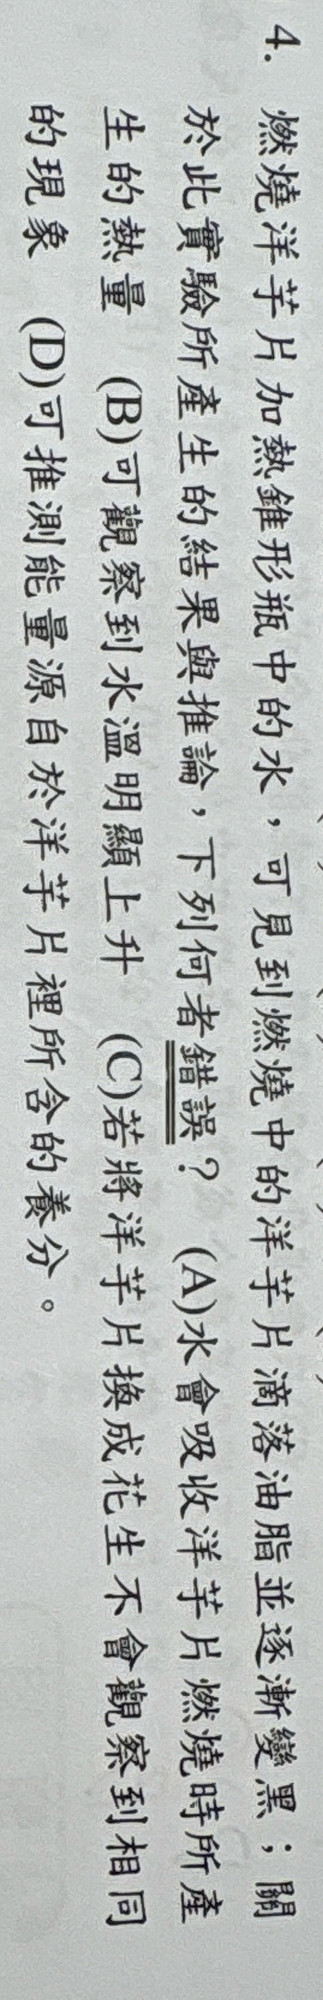 4. 燃燒洋芋片加熱錐形瓶中的水，可見到燃燒中的洋芋片滴落油脂並逐漸變黑；關
於此實驗所產生的結果與推論，下列何者錯誤？ (A)水會吸收洋芋片燃燒時所產
生的熱量 (B)可觀察到水溫明顯上升 (C)若將洋芋片換成花生不會觀察到相同
的現象 (D)可推測能量源自於洋芋片裡所含的養分。